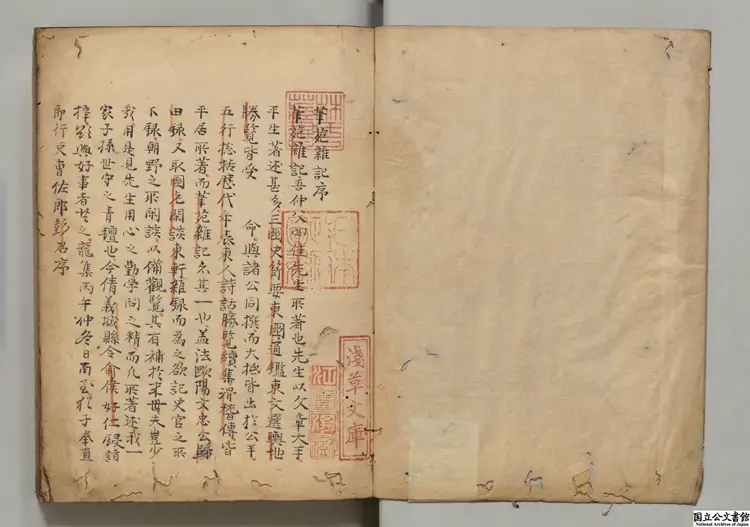 筆苑雜記序
筆苑雜記吾仲父四佳先生所著也先生以文章大手
平生著述甚多三國史節要東國通鑑東文選輿地
勝覽皆受 命與諸公同撰而大抵皆出於公手
五行摠括歷代年表東人詩話勝覽續集滑稽傳皆
平居所著而筆苑雜記亦其一也盖法歐陽文忠公歸
田録又取國老閑談東軒雜録而為之欲記史官之所
不録朝野之所閑談以備觀覽其有補於来世夫豈少
哉用是見先生用心之勤學問之精而凡所著述我一
家子孫世守之青氊也今倩義城縣令兪侯好仁鋟諸
梓欲與好事者共之龍集丙午仲冬日南至猶子奉直
郎行吏曹佐郎彭召序
淺草文庫
国立公文書館
National Archives of Japan